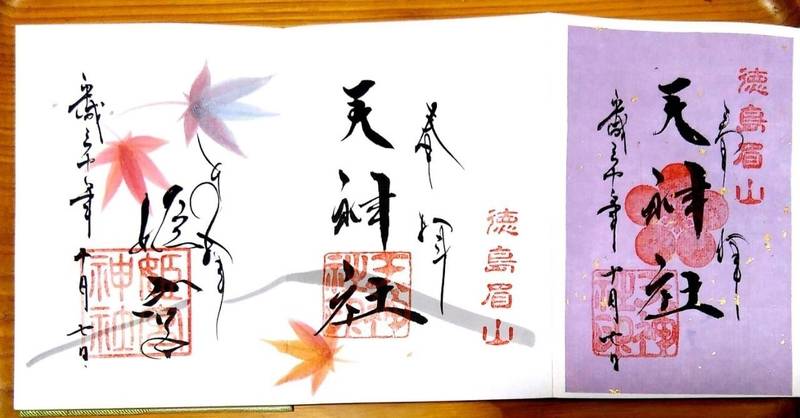 徳島眉山
奉拝
天神社
平成三十年 十月七日
徳島眉山
奉拝
天神社
奉拝
神社
平成三十年 十月七日